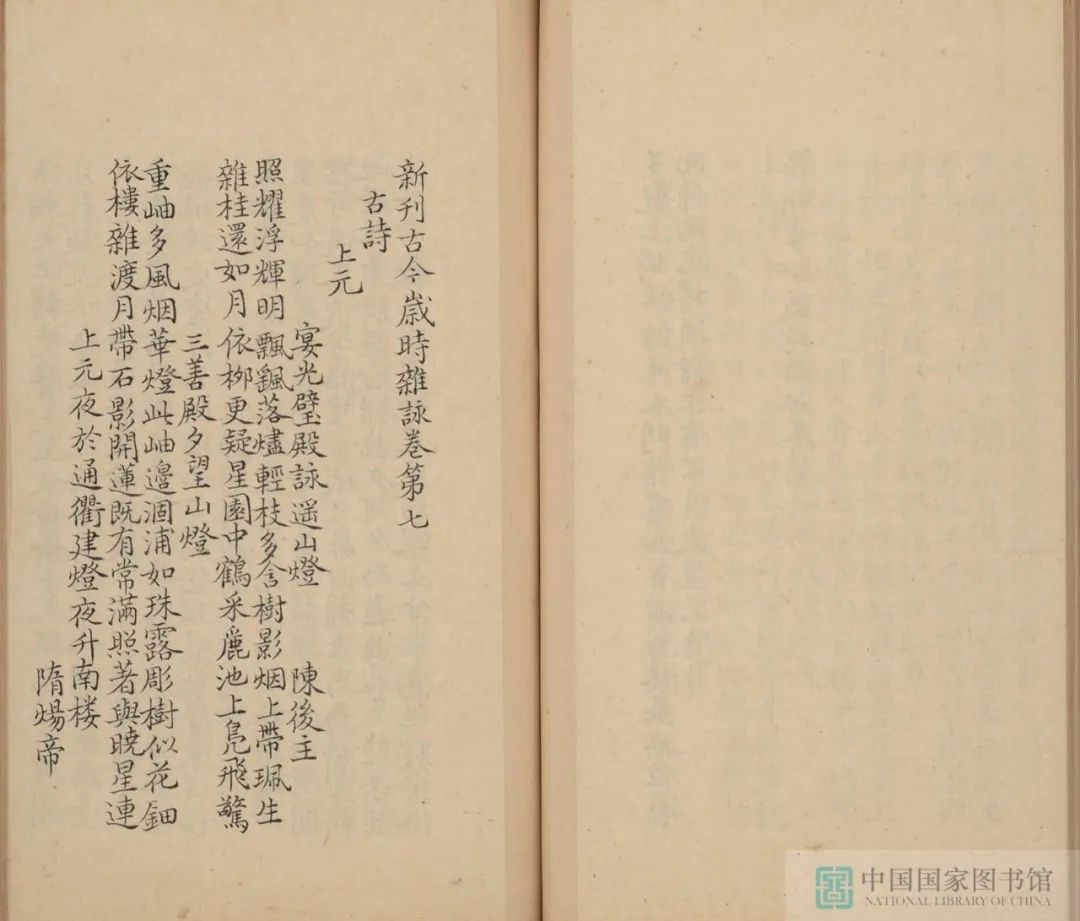 新刊古今歳時雜詠卷第七
古詩
上元
宴光璧殿詠遥山燈 陳後主
照耀浮輝明飄颻落燼輕枝多含樹影烟上帶珮生
雜桂還如月依柳更疑星園中鶴采麗池上鳧飛驚
三善殿夕望山燈
重岫多風烟華燈此岫邉涸浦如珠露彫樹似花鈿
依樓雜渡月帶石影開蓮既有常滿照著與曉星連
上元夜於通衢建燈夜升南楼
隋煬帝
中国国家图书馆
NATIONAL LIBRARY OF CHINA